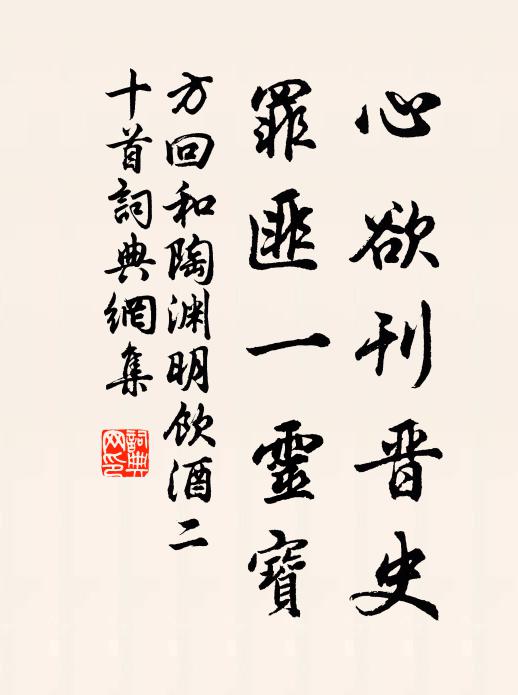 心欲刊晋史
罪匪一靈寶
方回和陶渊明飲酒二
十首詞典網集
詞典
网印